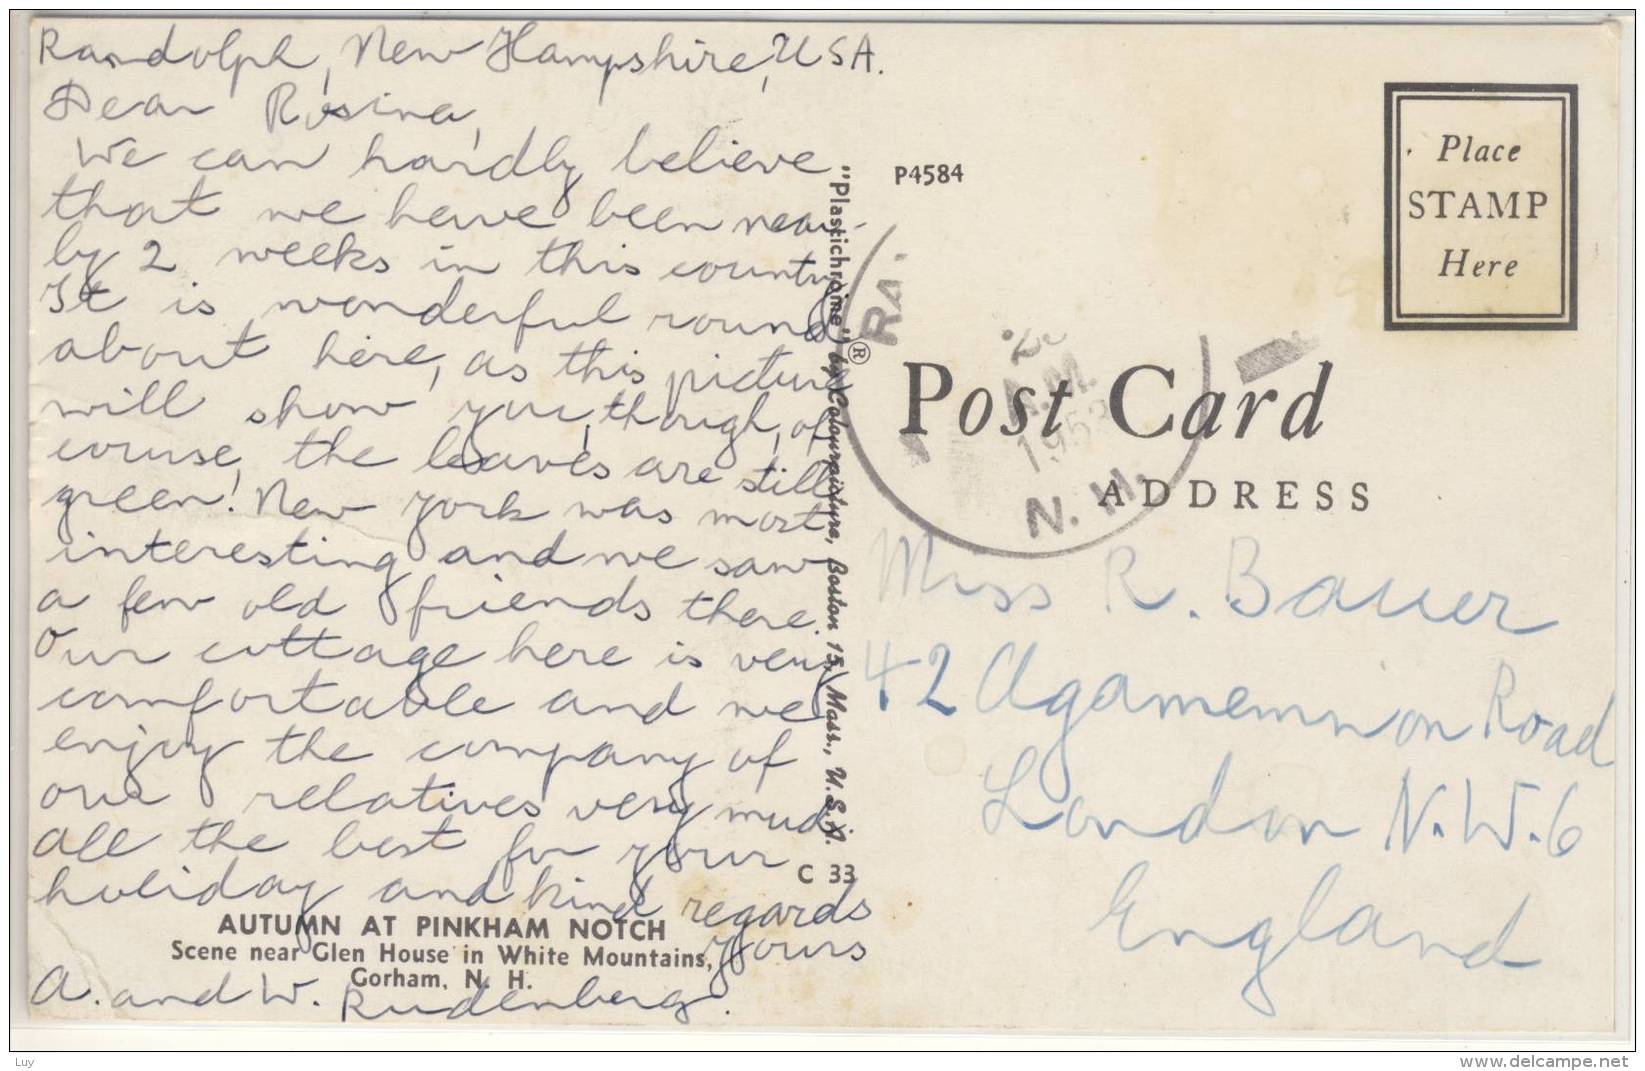 Randolph, New Hampshire, USA.
Dear Rosina,
We can hardly believe
that we have been near-
by 2 weeks in this country
It is wonderful round
about here, as this picture
will show you, though, of
course, the leaves are still
green! New York was most
interesting and we saw
a few old friends there.
Our cottage here is very
comfortable and we
enjoy the company of
our relatives very much.
All the best for your
holiday and kind regards
yours
A. and W. Rudenberg.
AUTUMN AT PINKHAM NOTCH
Scene near Glen House in White Mountains,
Gorham, N. H.
C 33
"Plastichrome" ® by Colourpicture, Boston 15, Mass., U.S.A.
P4584
Place
STAMP
Here
Post Card
ADDRESS
RA
A.M.
N. H.
Miss R. Bauer
42 Agamemnon Road
London N.W.6
England
Luy
www.delcampe.net